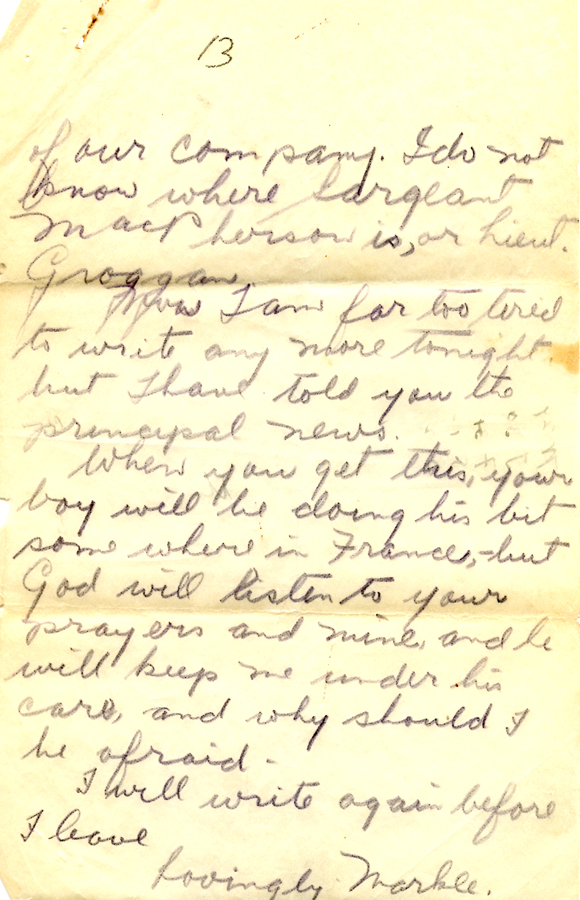 13
of our company. I do not
know where Sargeant
MacPherson is, or Lieut.
Groggan.
Now I am far too tired
to write any more tonight.
but I have told you the
principal news.
When you get this, your
boy will be doing his bit
some where in France,-but
God will listen to your
prayers and mine, and he
will keep me under his
care, and why should I
be afraid-
I will write again before
I leave
Lovingly Markle.